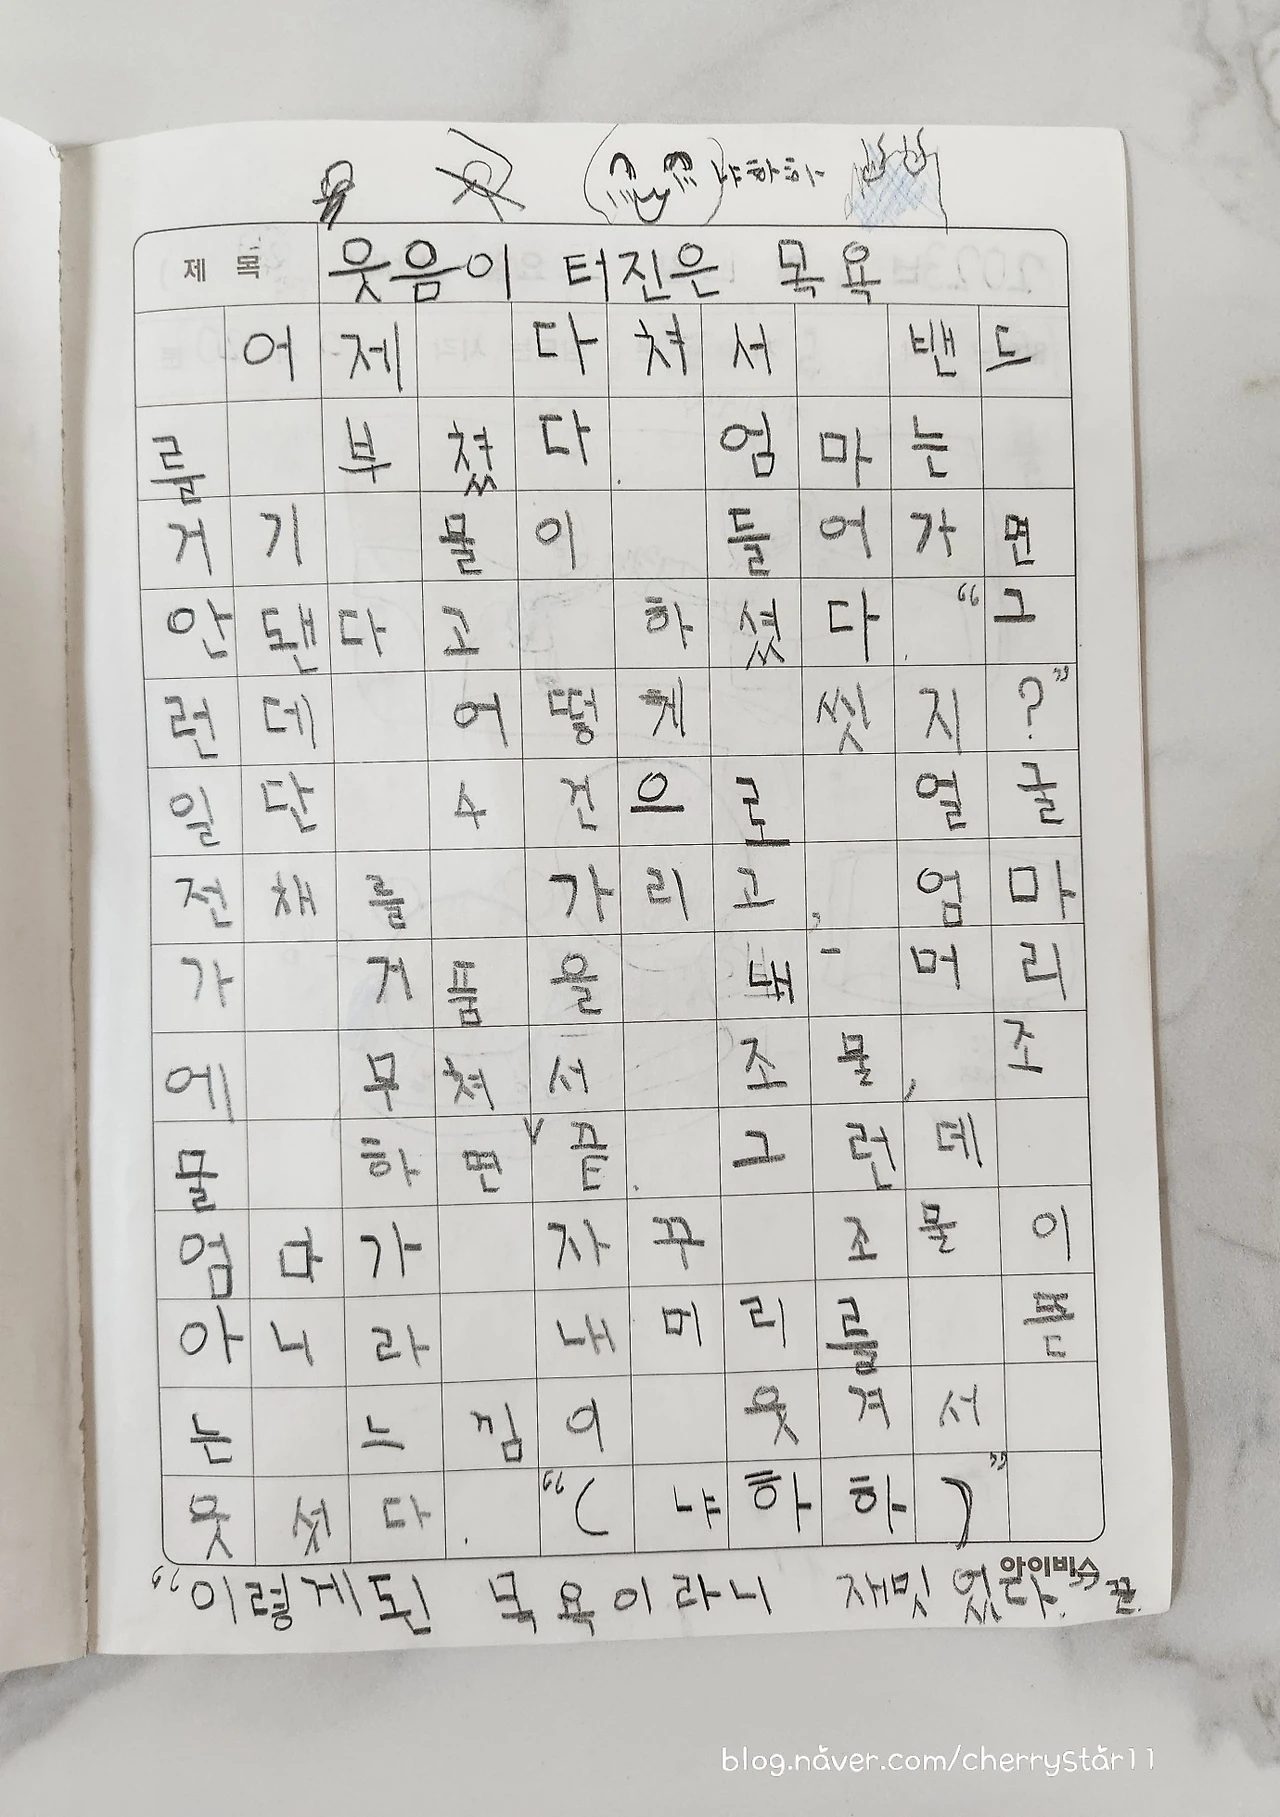 냐하하
제 목 웃음이 터진은 목욕
어제 다쳐서 밴드
를 부쳤다. 엄마는
거기 물이 들어가면
안됀다고 하셨다. “그
런데 어떻게 씻지?”
일단 수건으로 얼굴
전채를 가리고, 엄마
가 거품을 내- 머리
에 부쳐서 조물, 조
물 하면 끝. 그런데
엄마가 자꾸 조물이
아니라 내머리를 뜯
는 느낌이 웃겨서
웃섯다. “(냐하하)”
아이비스
“이렇게된 목욕이라니 재밋었다.” 끝.
blog.naver.com/cherrystar11